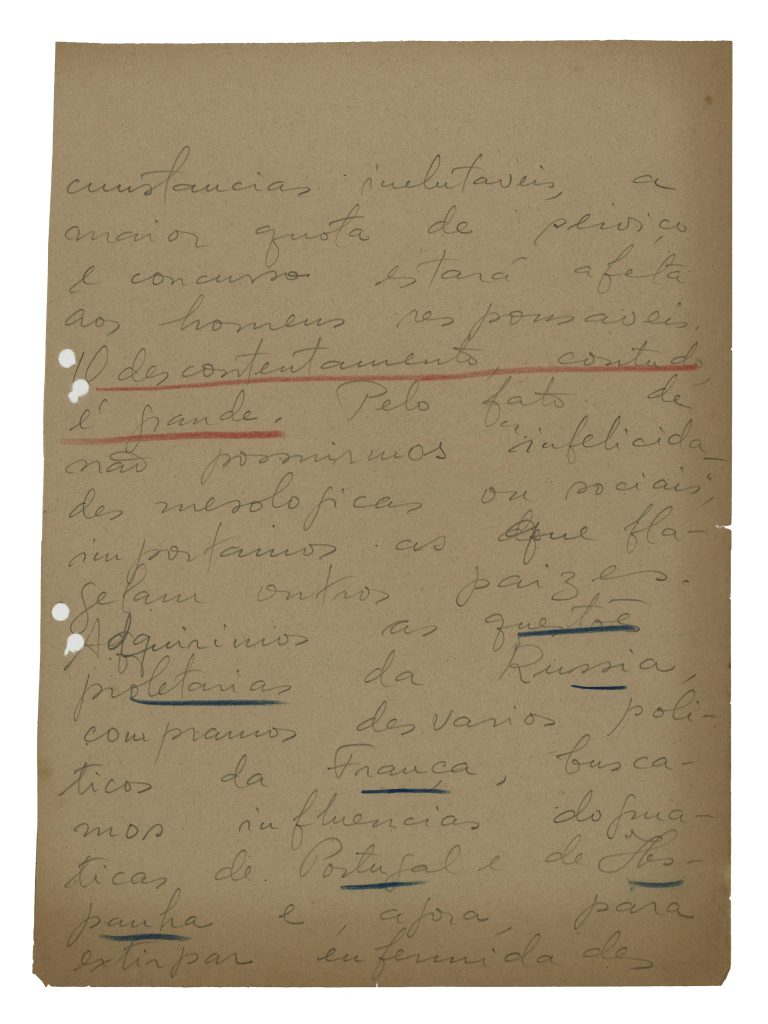 cunstancias inelutaveis, a
maior quota de serviço
e concurso estará afeta
aos homens responsaveis.
10 descontentamento, contudo,
é grande. Pelo fato de
não possuirmos "infelicida-
des mesologicas ou sociais",
importamos as que fla-
gelam outros paizes.
Adquirimos as questõe
proletarias da Russia,
compramos desvarios poli-
ticos da França, busca-
mos influencias dogma-
ticas de Portugal e de Hes-
panha e, agora, para
extirpar enfermidades